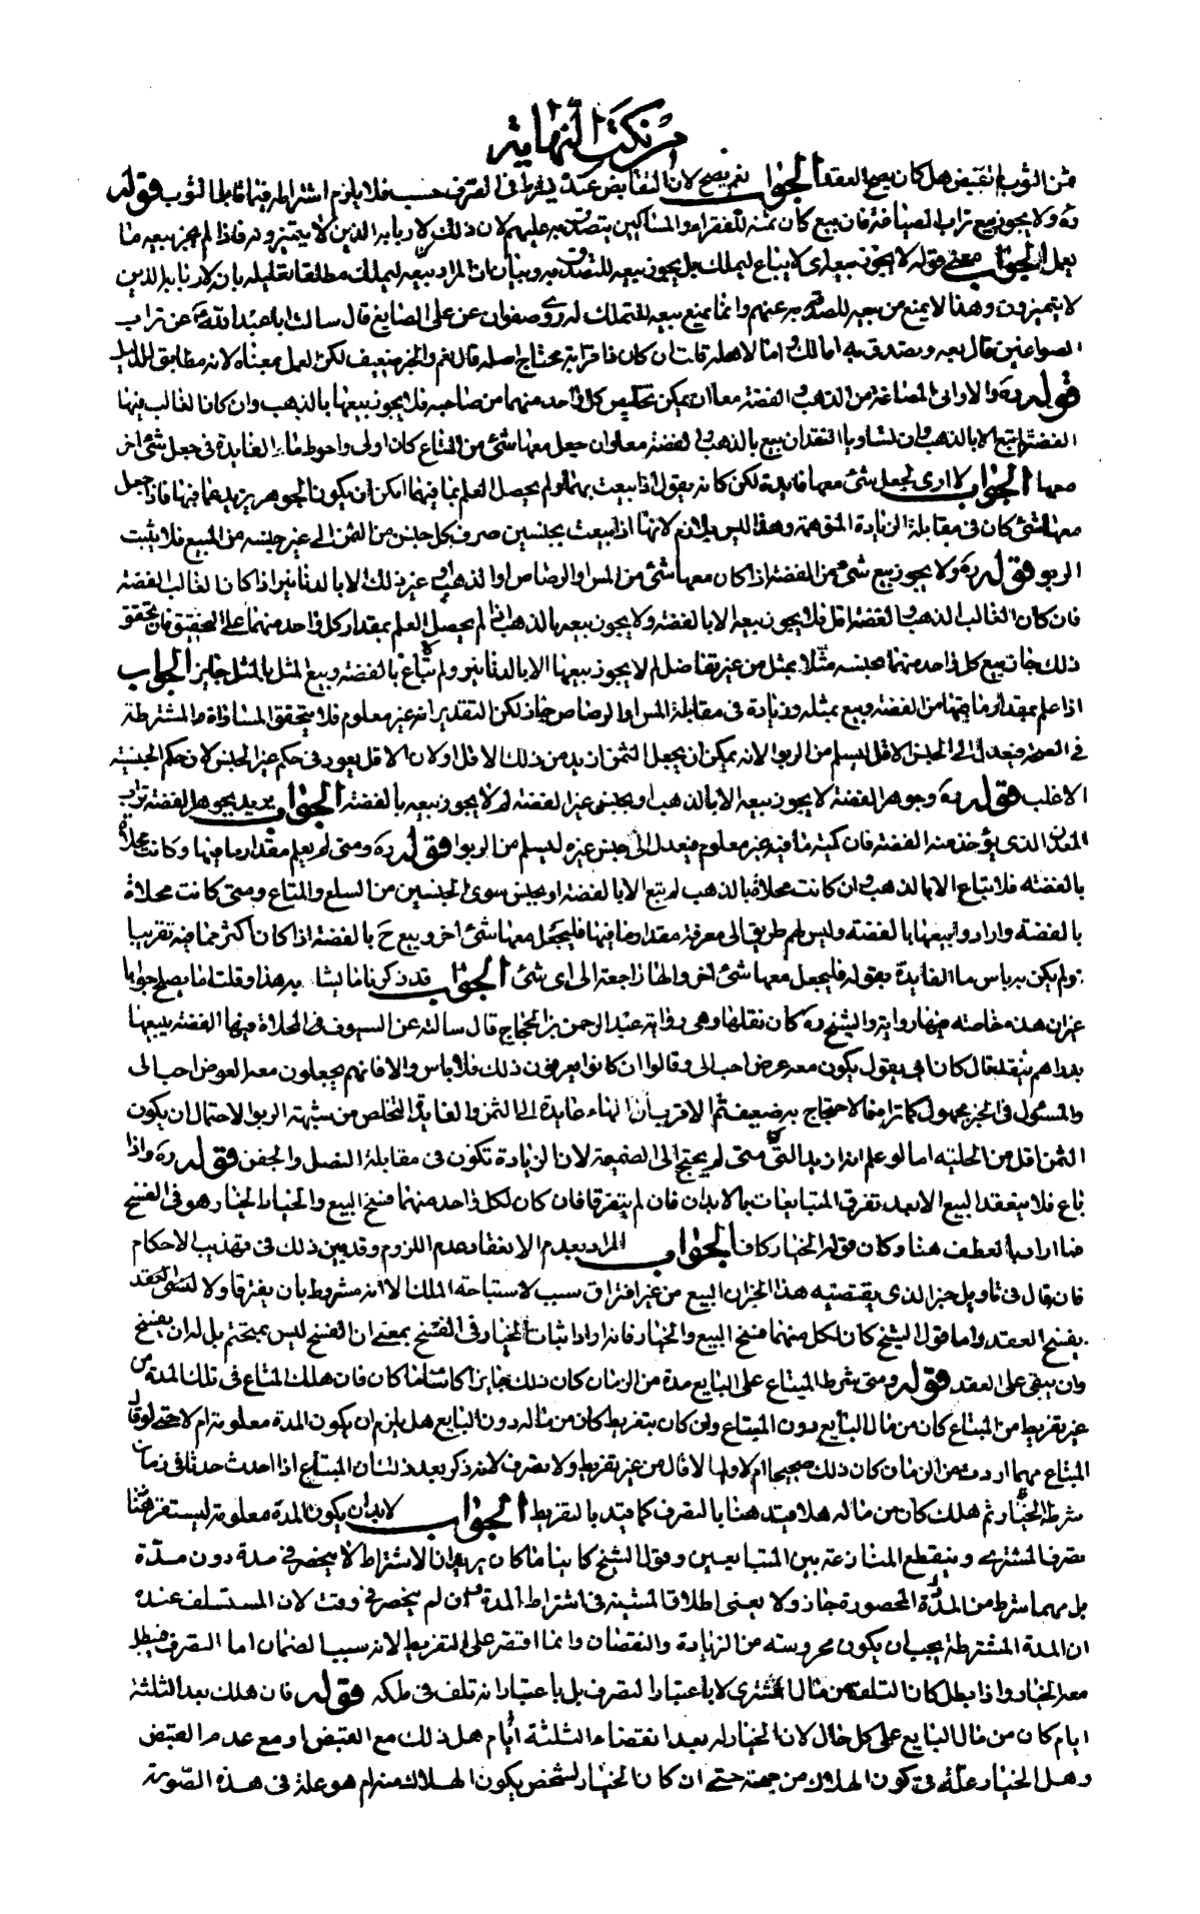 من نكت النهاية
ثمن الثوب القبض هل كان يصح العقد الجواب نعم يصح لان التقابض عندى شرط فى الصرف حسب فلا يلزم اشتراطه فيما قابل الثوب قوله
ره ولا يجوز بيع تراب الصياغة فان بيع كان ثمنه للفقراء والمساكين يتصدق به عليهم لان ذلك لاربابه الذين لا يتميزونه فاذا لم يجز بيعه ما
يعمل الجواب معنى قوله لا يجوز بيعه اى لا يباع ليملك بل يجوز بيعه للتصدق به وبيان ان المراد بيعه ليملك مطلقا تعليله بان لاربابه الذين
لا يتميزون وهذا لا يمنع من بيعه للصدقة به عنهم وانما يمنع بيعه للتملك له روى صفوان عن على الصايغ قال سالت ابا عبد الله ع عن تراب
الصواغين قال بعه وتصدق به اما لك واما لاهله قلت ان كان ذا قرابة محتاج اصله قال نعم والخبر ضعيف لكن العمل بمعناه لانه مطابق للدليل
قوله ره والاوانى المصاغة من الذهب والفضة معا ان يمكن تخليص كل واحد منهما من صاحبه فلا يجوز بيعها بالذهب وان كان الغالب فيها
الفضة لم تبع الا بالذهب وان تساويا النقدان بيع بالذهب والفضة معا وان جعل معها شئ من المتاع كان اولى واحوط ما الفايدة فى جعل شئ اخر
معها الجواب لا ارى لجعل شئ معها فايدة لكن كانه يقول اذا بيعت بهما ولم يحصل العلم بما فيهما امكن ان يكون الجوهر يزيد عما فيها فاذا جعل
معها شئ كان فى مقابلة الزيادة المتوهمة وهذا ليس بلازم لانها اذا بيعت بجنسين صرف كل جنس من الثمن الى غير جنسه من المبيع فلا يثبت
الربو قوله ره ولا يجوز بيع شئ من الفضة اذا كان معها شئ من المس او الرصاص او الذهب او غير ذلك الا بالدنانير اذا كان الغالب الفضة
فان كان الغالب الذهب والفضة اقل فلا يجوز بيعه الا بالفضة ولا يجوز بيعه بالذهب اذا لم يحصل العلم بمقدار كل واحد منهما على التحقيق فان تحقق
ذلك جاز بيع كل واحد منهما بجنسه مثلا بمثل من غير تفاضل لم لا يجوز بيعها الا بالدنانير ولم لا تباع بالفضة وبيع المثل بالمثل جايز الجواب
اذا علم مقدار ما فيها من الفضة وبيع بمثله وزيادة فى مقابلة المس او الرصاص جاز لكن التقدير انه غير معلوم فلا يتحقق المساواة المشترطة
فى الصحة فيعدل الى الجنس الاقل ليسلم من الربوا لانه يمكن ان يجعل الثمن ازيد من ذلك الاقل اولان الاقل يعود فى حكم غير الجنس لان حكم الجنسية
الاغلب قوله ره وجوهر الفضة لا يجوز بيعه الا بالذهب او بجنس غير الفضة لم لا يجوز بيعه بالفضة الجواب يريد بجوهر الفضة تراب
المعدن الذى يؤخذ منه الفضة فان كمية ما فيه غير معلوم فيعدل الى جنس غيره ليسلم من الربوا قوله ره ومتى لم يعلم مقدار ما فيها وكانت محلاة
بالفضه فلا تباع الا بالذهب وان كانت محلاة بالذهب لم تبع الا بالفضة او بجنس سوى الجنسين من السلع والمتاع ومتى كانت محلاة
بالفضة وارادوا بيعها بالفضة وليس لهم طريق الى معرفة مقدار ما فيها فليجعل معها شئ اخر وبيع ح بالفضة اذا كان اكثر مما فيه تقريبا
ولم يكن به باس ما الفايدة بقوله فليجعل معها شئ اخر والها راجعة الى اى شئ الجواب قد ذكرنا ما يشابه هذا وقلت اما يصلح جوابا
غير ان هذه خاصته فيها رواية والشيخ ره كان نقلها وهى رواية عبد الرحمن بن الحجاج قال سالته عن السيوف المحلاة فيها الفضة يبيعها
بدراهم بنقد قال كان ابى يقول يكون معه عرض احب الى وقالوا ان كانوا يعرفون ذلك فلا باس والا فانهم يجعلون معه العرض احب الى
والمسئول فى الخبر مجهول كما ترا فالاحتجاج به ضعيف ثم الاقرب ان الهاء عايدة الى الثمن والفايدة التخلص من شبهة الربو الاحتمال ان يكون
الثمن اقل من الحلية اما لو علم انه ازيد لم يحتج الى الضميمة لان الزيادة تكون فى مقابلة النصل والجفن قوله ره واذا
باع فلا ينعقد البيع الا بعد تفرق المتبايعان بالابدان فان لم يتفرقا فان كان لكل واحد منهما فسخ البيع والخيار الخيار هو فى الفسخ
فما اراد بالعطف هنا وكان قوله الخيار كاف الجواب المراد بعدم الانعقاد عدم اللزوم وقد بين ذلك فى تهذيب الاحكام
فان قال فى تاويل خبر الذى يقتضيه هذا الخبر ان البيع من غير افتراق سبب لاستباحة الملك الا انه مشروط بان يفترقا ولا العقد
بفسخ العقد واما قول الشيخ كان لكل منهما فسخ البيع والخيار فانه اراد اثبات الخيار فى الفسخ بمعنى ان الفسخ ليس بمحتم بل له ان يفسخ
وان يبقى على العقد قوله ومتى شرط المبتاع على البايع مدة من الزمان كان ذلك جايزا كائنا ما كان فان هلك المتاع فى تلك المدة من
غير تفريط من المبتاع كان من مال البايع دون المبتاع وان كان بتفريط كان من ماله دون البايع هل يلزم ان يكون المدة معلومة ام لا حتى لو قال
المبتاع مهما اردت من الزمان كان ذلك صحيحا ام لا ولم لا قال من غير تفريط ولا تصرف لانه ذكر بعد ذلك ان المبتاع اذا احدث حدثا فى زمان
شرط الخيار ثم هلك كان من ماله هلا قيد هنا بالتصرف كما قيد بالتفريط الجواب لا بد ان يكون المدة معلومة ليستقر هنا
تصرف المشترى وينقطع المنازعة بين المتبايعين وقول الشيخ كاينا ما كان يريد ان الاشتراط لا ينحصر فى مدة دون مدة
بل مهما شرط من المدة المحصورة جاز ولا يعنى اطلاق المشية فى اشتراط المدة وان لم ينحصر فى وقت لان المستسلف عنده
ان المدة المشترطة يجب ان يكون محروسة من الزيادة والنقصان وانما اقتصر على التفريط لانه سبب الضمان اما التصرف فيبطل
معه الخيار واذا بطل كان التلف من مال المشترى لا باعتبار التصرف بل باعتبار انه تلف فى ملكه قوله فان هلك بعد الثلثة
ايام كان من مال البايع على كل حال لان الخيار له بعد انقضاء الثلثة ايام هل ذلك مع القبض او مع عدم القبض
وهل الخيار علة فى كون الهلاك من جهته حتى ان كان الخيار لشخص يكون الهلاك منه ام هو علة فى هذه الصورة